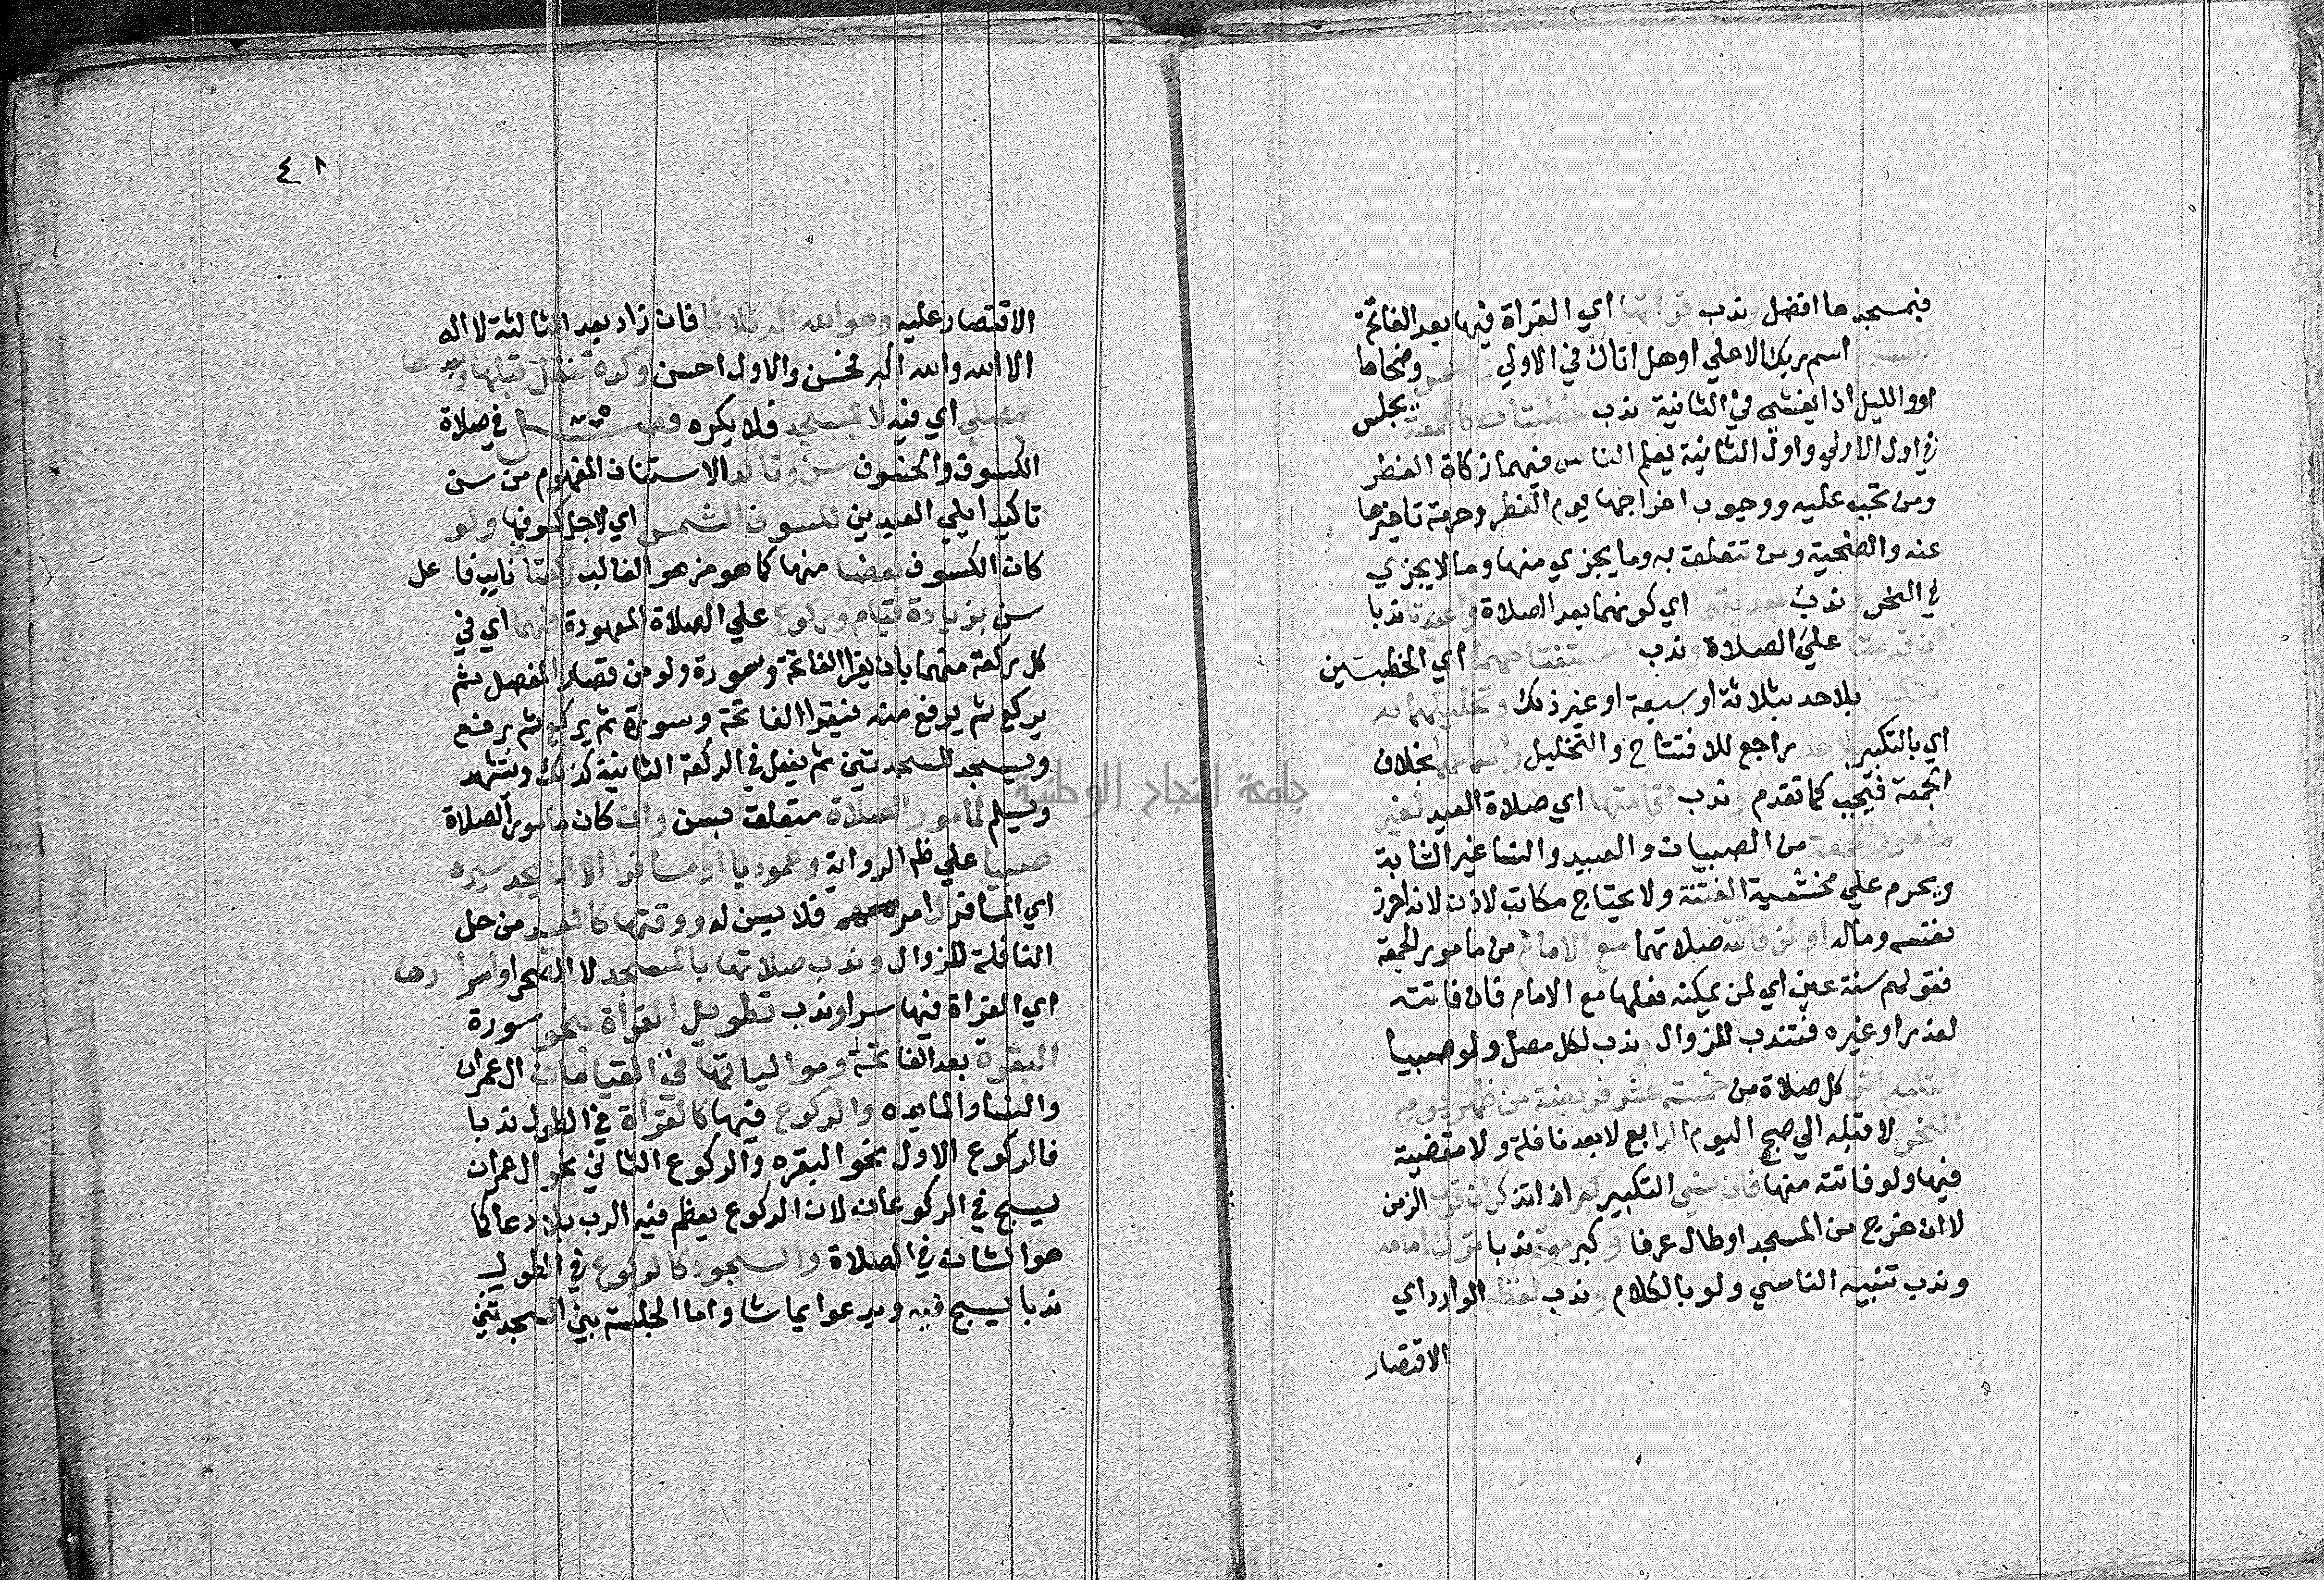 فبمسجدها افضل وندب قراتها اي القراة فيها بعد الفاتحة
بسبح اسم ربك الاعلي اوهل اتاك في الاولي والشمس وضحاها
اووالليل اذا يغشي في الثانية وندب خطبتان كالجمعة يجلس
في اول الاولي واول الثانية يعلم الناس فيهما زكاة الفطر
ومن تجب عليه ووجوب اخراجها يوم الفطر وحرمة تاخيرها
عنه والضحية ومن تتعلق به وما يجزي منها وما لا يجزي
في النحر وندب بعديتهما اي كونهما بعد الصلاة واعيدتا ندبا
ان قدمتا علي الصلاة وندب استفتاحهما اي الخطبتين
بتكبير بلاحد بثلاثة او سبعة او غير ذلك وتخليلهما به
اي بالتكبير بلاحد راجع للافتتاح والتخليل واسماعهما بخلاف
الجمعة فيجب كما تقدم وندب اقامتها اي صلاة العيد لغير
مامور الجمعة من الصبيان والعبيد والنسا غير الشابة
ويحرم علي مخشية الفتنة ولا يحتاج مكاتب لاذن لانه احرز
نفسه وماله او لمن فاتته صلاتهما مع الامام من مامور الجمعة
فقولهم سنة عين اي لمن يمكنه فعلها مع الامام فان فاتته
لعذر او غيره فتندب للزوال وندب لكل مصل ولو صبيا
التكبير اثر كل صلاة من خمسة عشر فريضة من ظهر يوم
النحر لا قبله الي صبح اليوم الرابع لا بعد نافلة ولا مقضية
فيها ولو فاتته منها فان نسي التكبير كبر اذا تذكر ان قرب الزمن
لا ان خرج من المسجد او طال عرفا وكبر موتم ندبا ترك امامه
وندب تنبيه الناسي ولو بالكلام وندب لفظه الوارد اي
الاقتصار
٤٨
الاقتصار عليه وهو الله اكبر ثلاثا فان زاد بعد الثالثة لا اله
الا الله والله اكبر فحسن والاول احسن وكره تنفل قبلها وبعدها
بمصلي اي فيه لا بمسجد فلا يكره فصل في صلاة
الكسوف والخسوف سن وتاكد الاستنان المفهوم من سن
تاكيدا يلي العيدين لكسوف الشمس اي لاجل كسوفها ولو
كان الكسوف بعضا منها كما هو الغالب ركعتان نايب فاعل
سن بزيادة قيام وركوع علي الصلاة المعهودة فيهما اي في
كل ركعة منهما بان يقرا الفاتحة وسورة ولو من قصار المفصل ثم
يركع ثم يرفع منه فيقرا الفاتحة وسورة ثم يركع ثم يرفع
ويسجد السجدتين ثم يفعل في الركعة الثانية كذلك ويتشهد
ويسلم لمامور الصلاة متعلق بسن وان كان مامور الصلاة
صبيا علي ظهر الرواية وعموديا او مسافرا الا ان يجد سيره
اي المسافر لامر مهم فلا يسن له ووقتها كالعيد من حل
النافلة للزوال وندب صلاتها بالمسجد لا الصحرا واسرارها
اي القراة فيها سرا وندب تطويل القراة بنحو سورة
البقرة بعد الفاتحة ومواليا تها في القيامات ال عمران
والنسا والمايده والركوع فيها كالقراة في الطول ندبا
فالركوع الاول نحو البقره والركوع الثاني نحو ال عمران
يسبح في الركوعان لان الركوع يعظم فيه الرب بلا دعا كما
هو الشان في الصلاة والسجود كالركوع في الطول
ندبا يسبح فيه ويدعوا بما شا واما الجلسة بين السجدتين
جامعة النجاح الوطنية